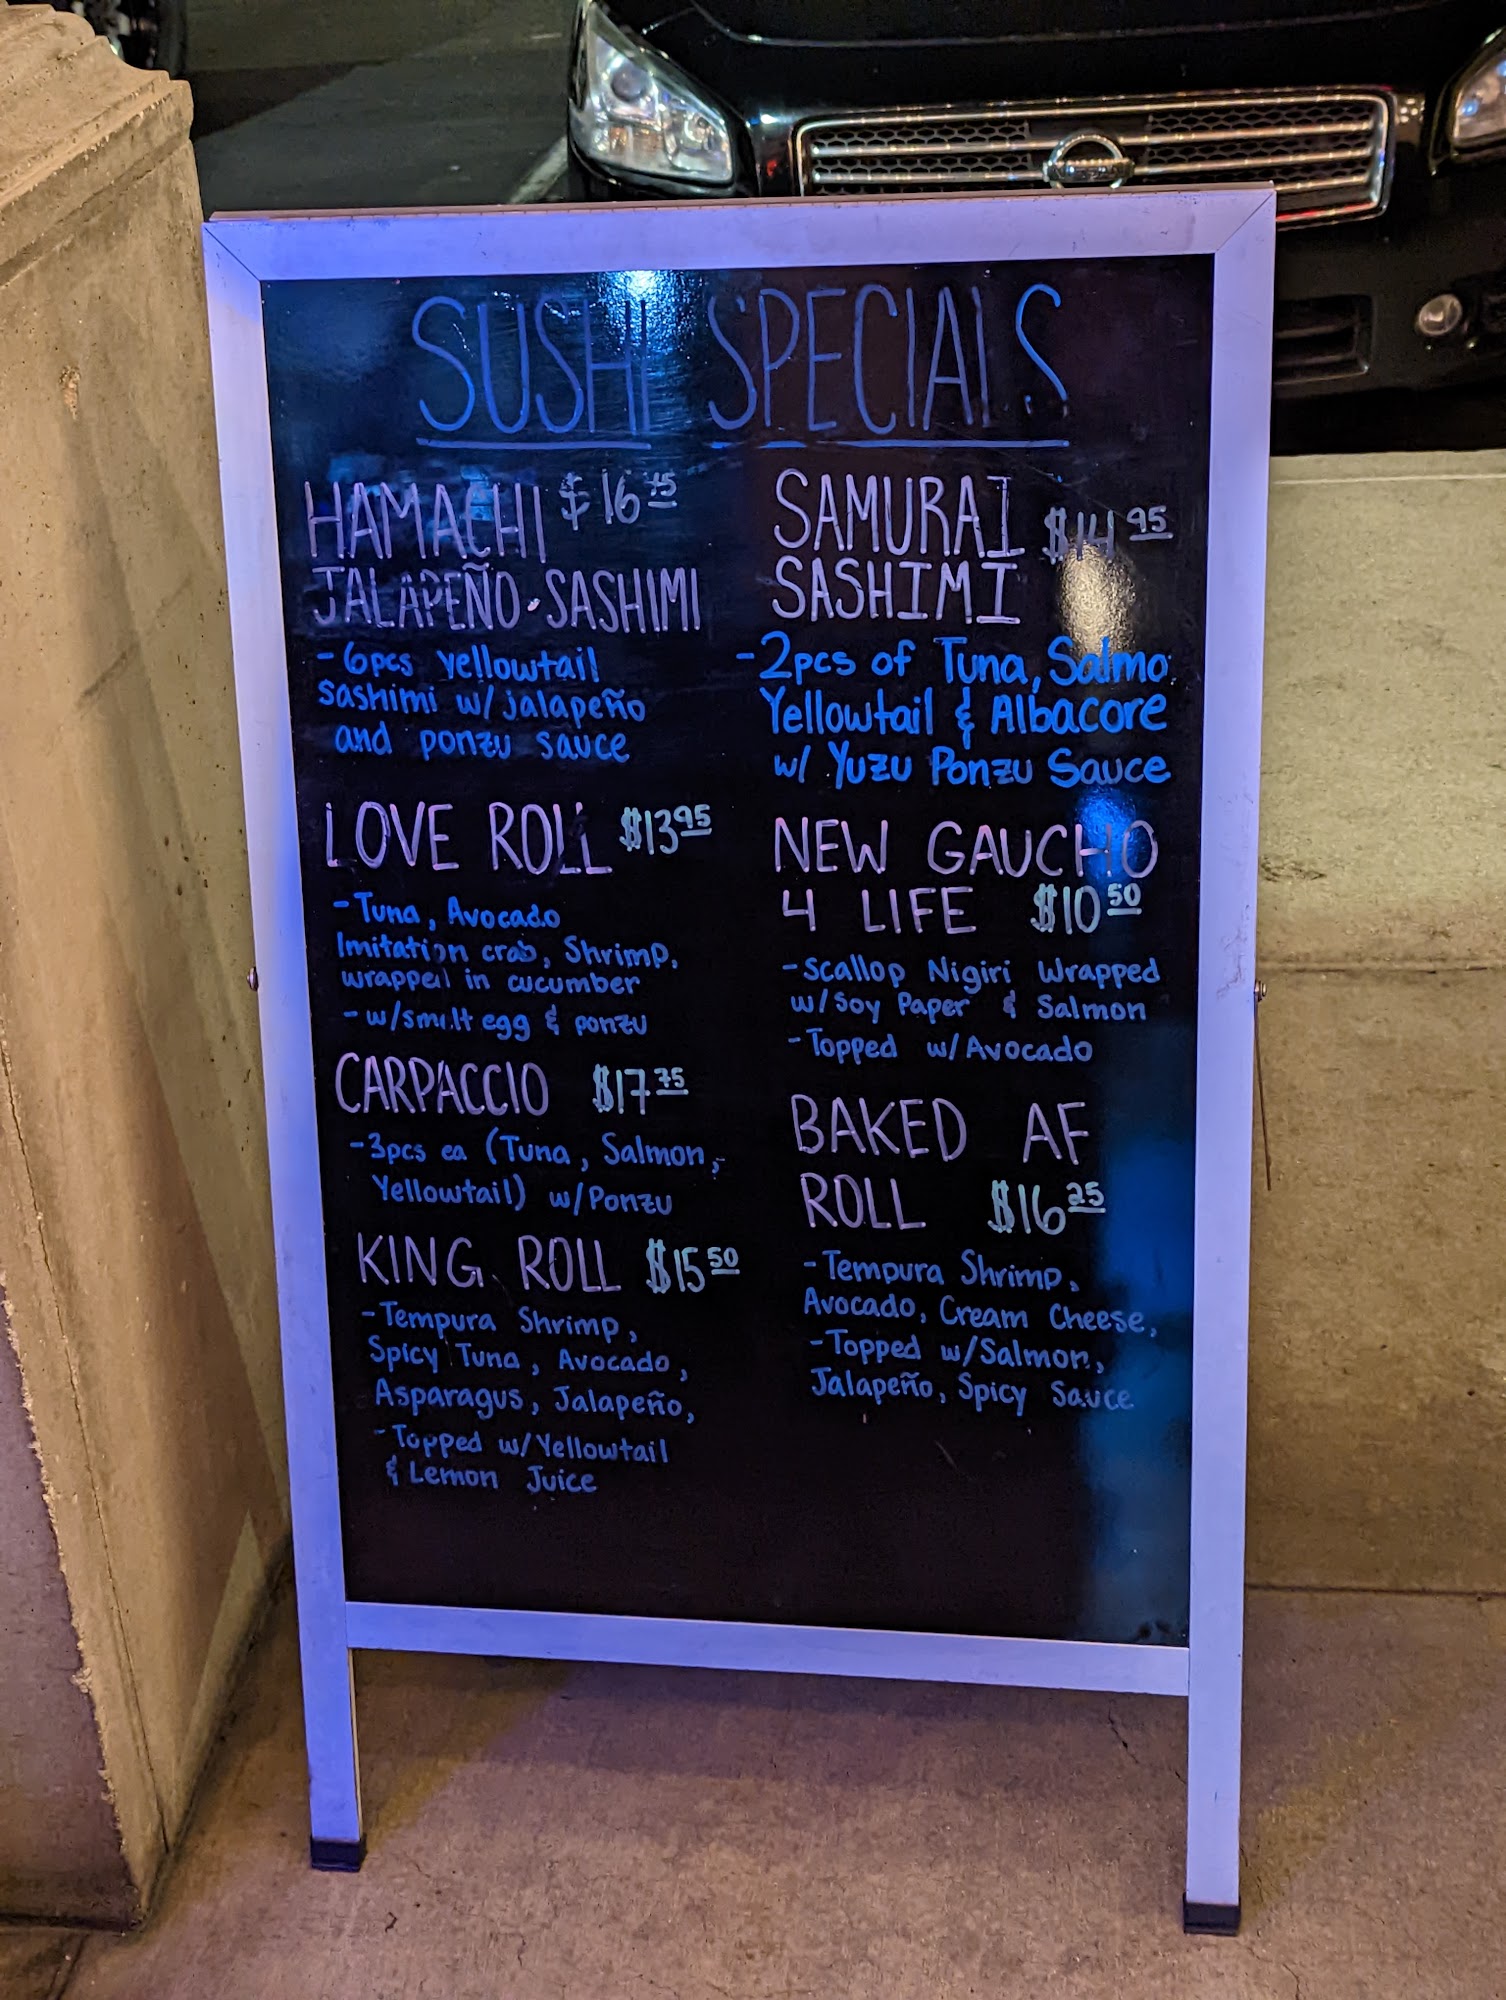 SUSHI SPECIALS
HAMACHI $16 75
JALAPEÑO·SASHIMI
- 6pcs yellowtail
sashimi w/ jalapeño
and ponzu sauce
LOVE ROLL $13 95
- Tuna, Avocado
Imitation crab, Shrimp,
wrapped in cucumber
- w/smelt egg & ponzu
CARPACCIO $17 75
- 3pcs ea (Tuna, Salmon,
Yellowtail) w/Ponzu
KING ROLL $15 50
- Tempura Shrimp,
Spicy Tuna, Avocado,
Asparagus, Jalapeño,
- Topped w/Yellowtail
& Lemon Juice
SAMURAI $14 95
SASHIMI
- 2pcs of Tuna, Salmo
Yellowtail & Albacore
w/ Yuzu Ponzu Sauce
NEW GAUCHO
4 LIFE $10 50
- Scallop Nigiri Wrapped
w/Soy Paper & Salmon
- Topped w/Avocado
BAKED AF
ROLL $16 25
- Tempura Shrimp,
Avocado, Cream Cheese,
- Topped w/Salmon,
Jalapeño, Spicy Sauce